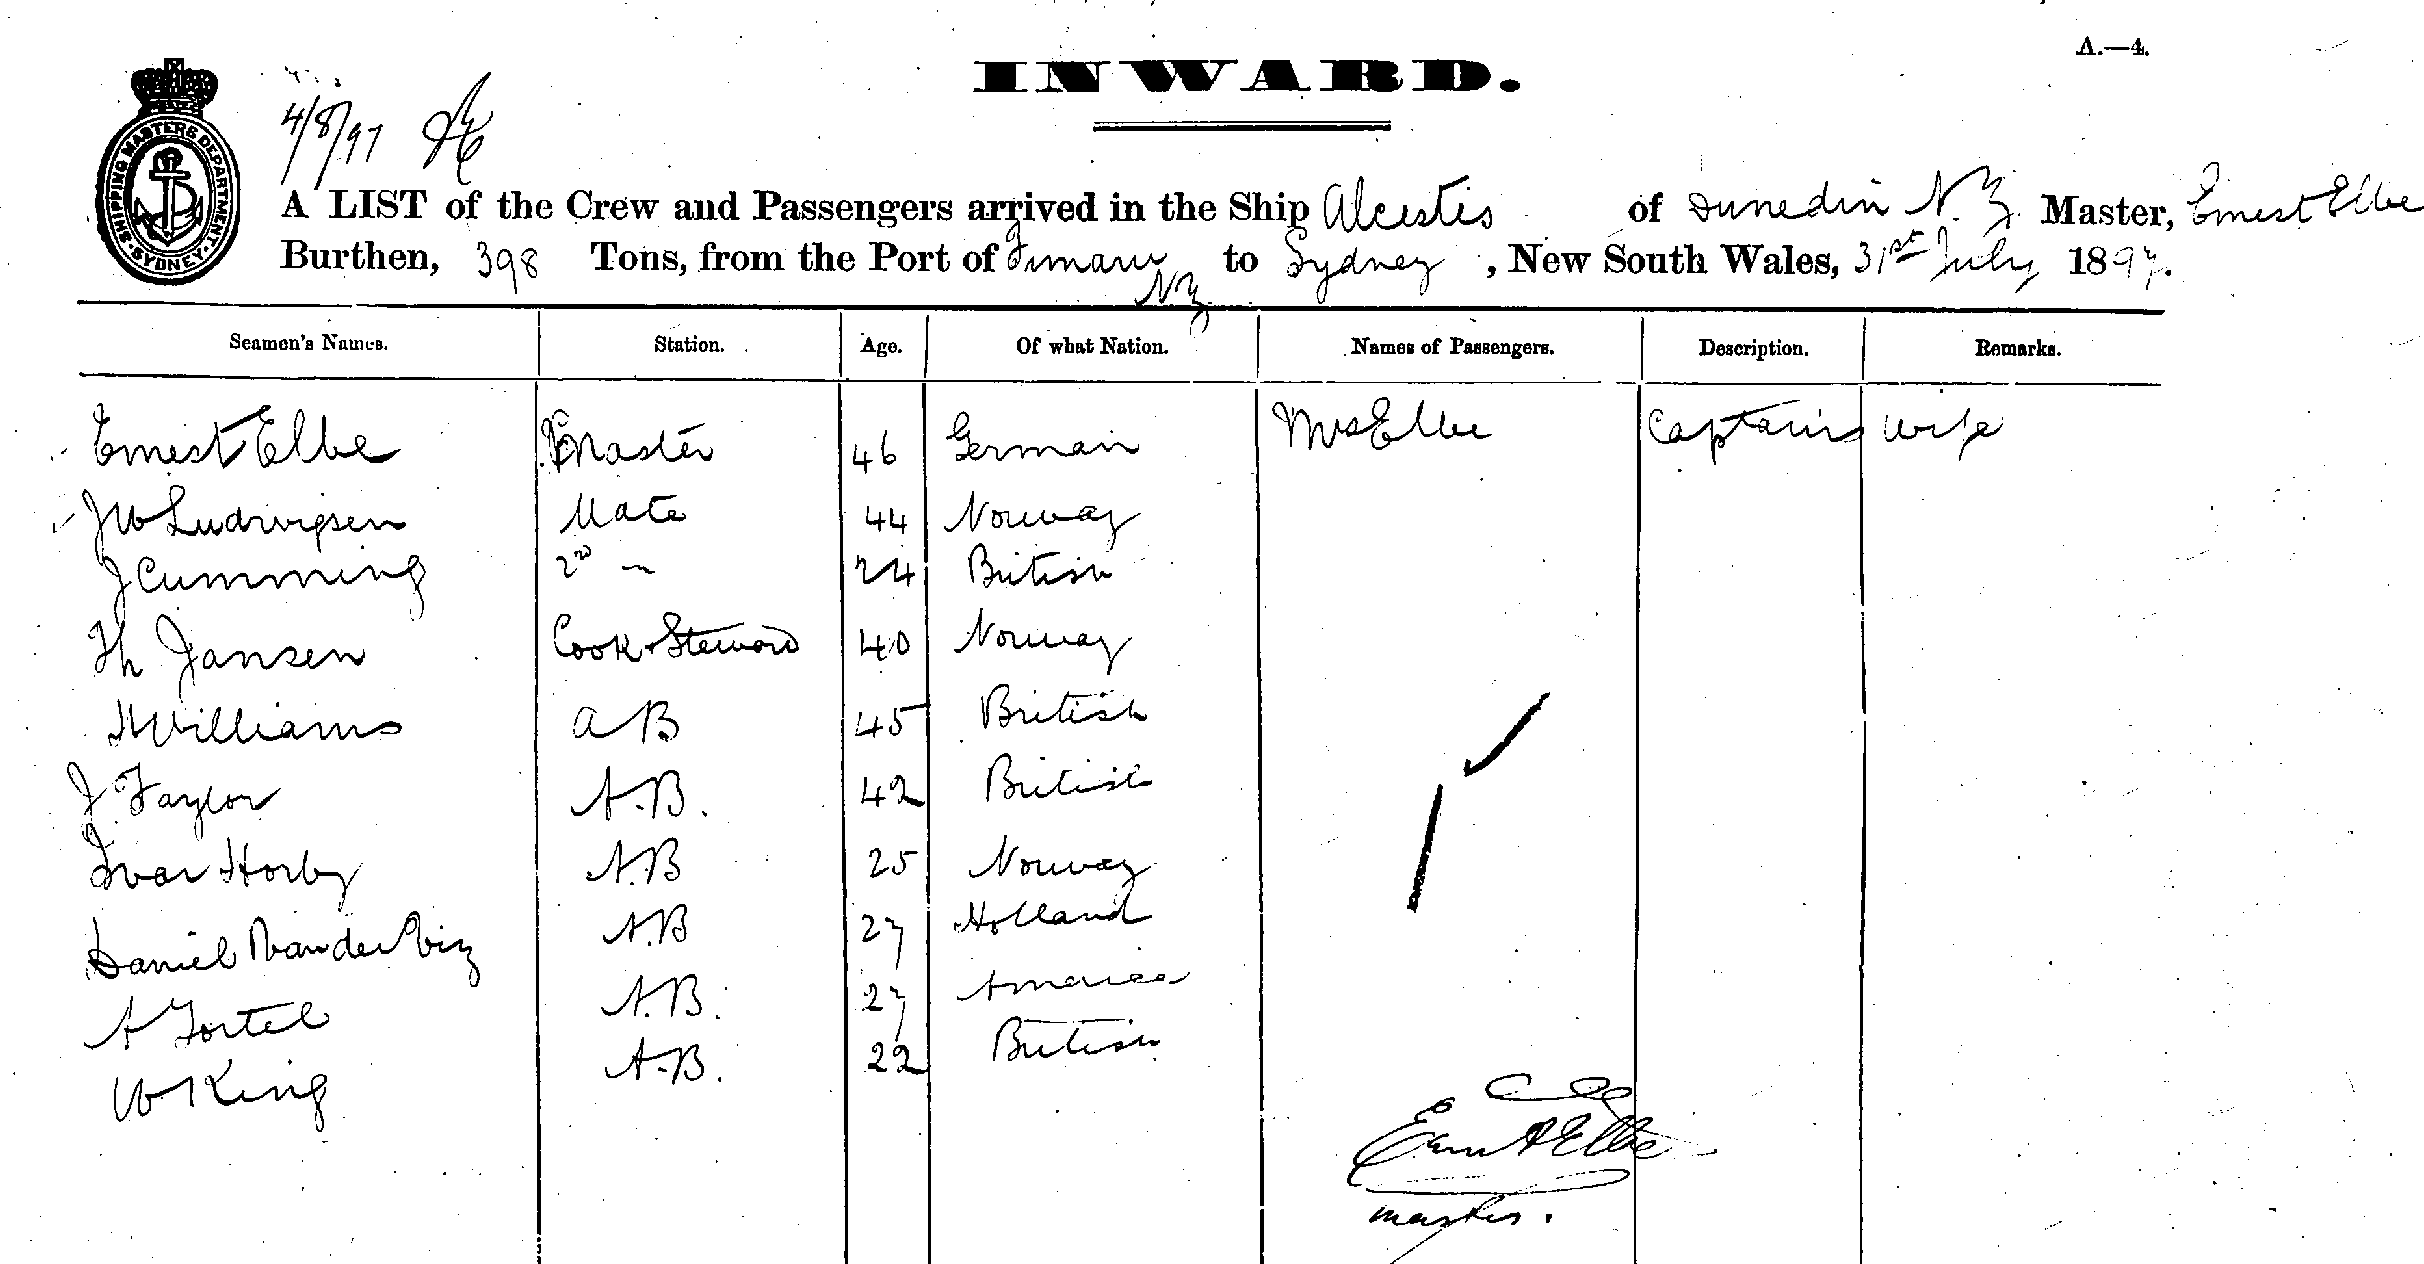 A.—4.
INWARD.
SHIPPING MASTERS DEPARTMENT. SYDNEY.
4/8/97
A LIST of the Crew and Passengers arrived in the Ship Alcestis of Dunedin N.Z. Master, Ernest Elbe
Burthen, 398 Tons, from the Port of Timaru N Z to Sydney, New South Wales, 31st July 1897.
Seamen's Names. Station. Age. Of what Nation. Names of Passengers. Description. Remarks.
Ernest Elbe Master 46 German Mrs Elbe Captains wife
J W Ludwigsen Mate 44 Norway
J Cumming 2nd " 24 British
Th Jansen Cook & Steward 40 Norway
Williams A B 45 British
J. Taylor A.B. 42 British
Ivar Horby A.B 25 Norway
Daniel Vander A.B 27 Holland
A Tortel A.B. 27 America
W King A.B. 22 British
Ernst Elbe
master.